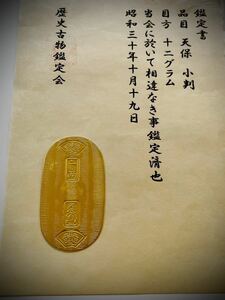 鑑定書
品目 天保 小判
目方 十二グラム
当会に於いて相違なき事鑑定済也
昭和三十年十月十九日
歴史古物鑑定会